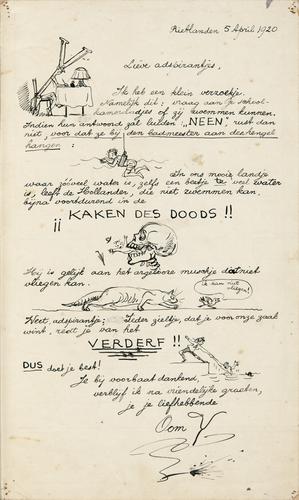 Rietlanden 5 April 1920
Lieve adspirantjes,
Ik heb een klein verzoekje.
Namelijk dit: vraag aan je school-
kameraadjes of zij zwemmen kunnen.
Indien hun antwoord zal luiden "NEEN", rust dan
niet, voor dat ze bij den badmeester aan de hengel
hangen:
In ons mooie landje
waar zooveel water is, zelfs een beetje te veel water
is, leeft de Hollander, die niet zwemmen kan,
bijna voortdurend in de
¡¡ KAKEN DES DOODS !!
Hij is gelijk aan het argelooze muschje dat niet
vliegen kan.
ik kan niet
vliegen!
Weet, adspirantje: Ieder zieltje, dat je voor onze zaak
wint, redt je van het
VERDERF !!
DUS doet je best!
Je bij voorbaat dankend,
verblijf ik na vriendelijke groeten,
je je liefhebbende
Oom Y